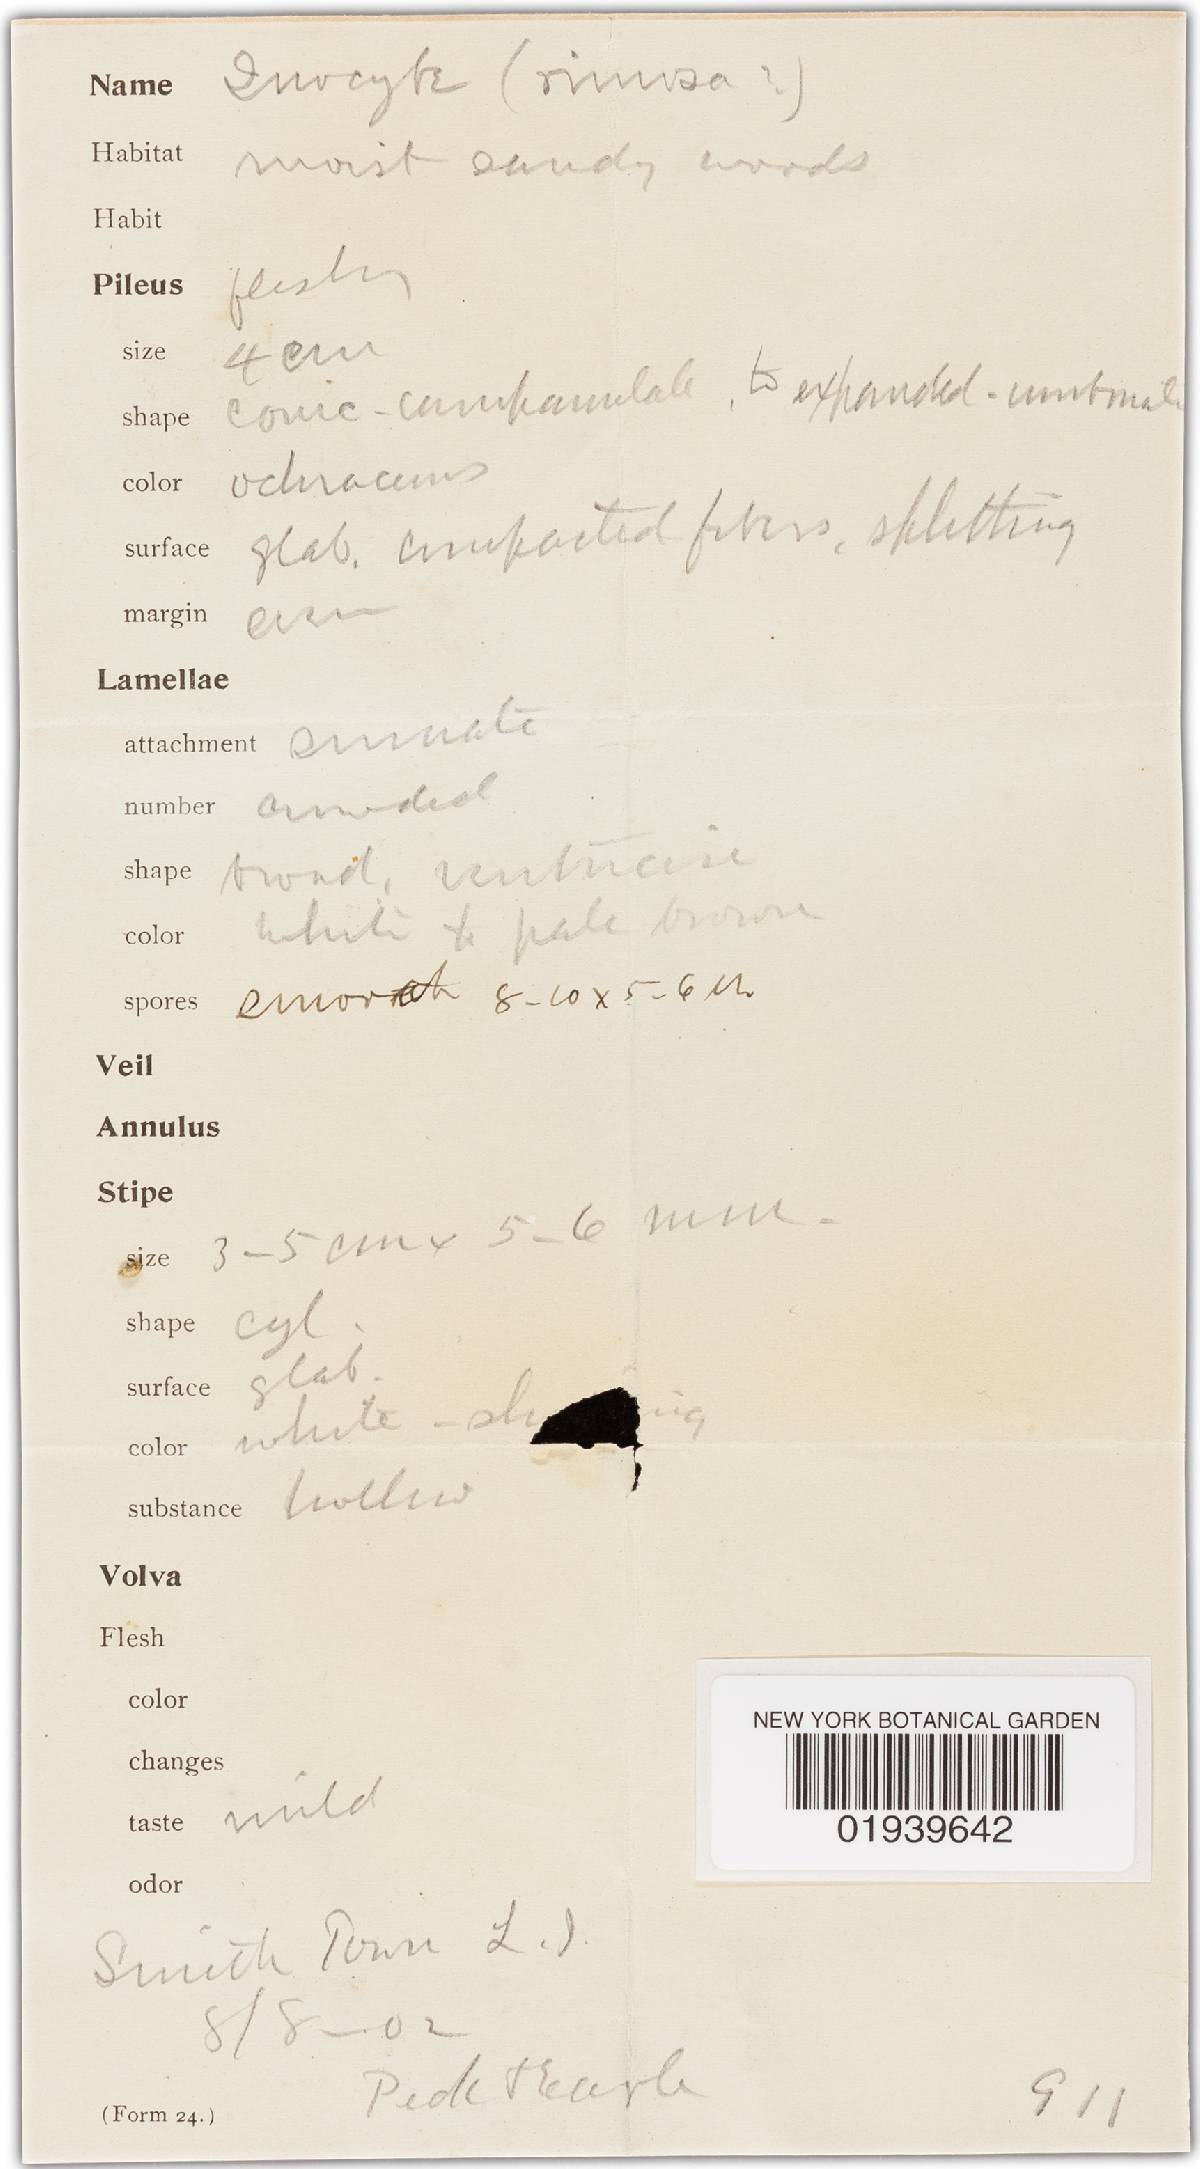 Name Inocybe (rimosa?)
Habitat moist sandy woods
Habit
Pileus fleshy
size 4 cm
shape conic-campanulate, to expanded-umbonate
color ochraceous
surface glab. compacted fibers, splitting
margin even
Lamellae
attachment sinuate
number crowded
shape broad, ventricose
color white to pale brown
spores smooth 8-10 x 5-6 µ
Veil
Annulus
Stipe
size 3-5 cm x 5-6 mm.
shape cyl.
surface glab.
color white -
substance hollow
Volva
Flesh
color
changes
taste mild
odor
NEW YORK BOTANICAL GARDEN
01939642
Smith Town L.I.
8/8-02
Peck & Earle
(Form 24.)
911